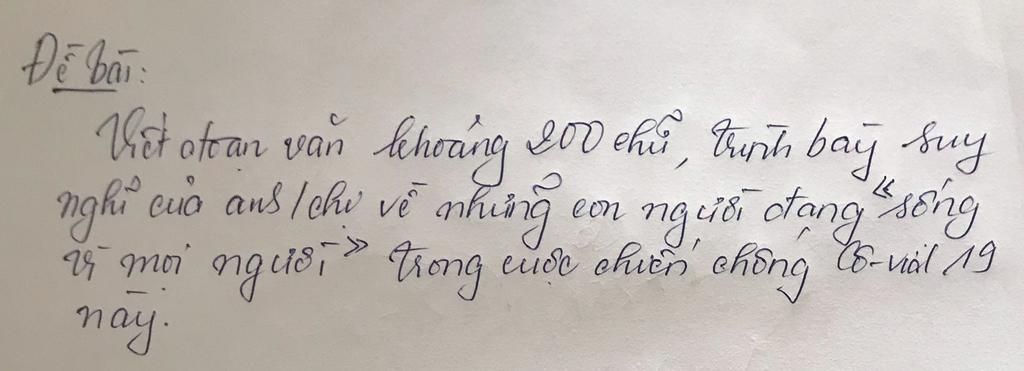 Đề bài:
Viết đoạn văn khoảng 200 chữ, trình bày suy
nghĩ của anh/chị về những con người đang "sống
vì mọi người" trong cuộc chiến chống Cô-vid 19
này.